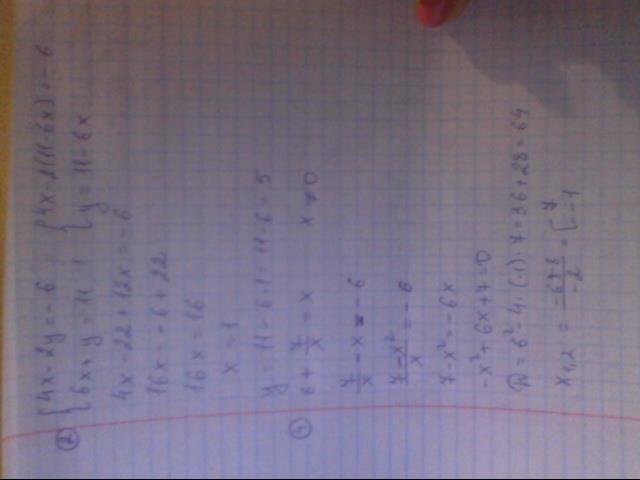 ② {4x-2y=-6 {6x+y=11 ; {4x-2(11-6x)=-6 {y=11-6x
4x-22+12x=-6
16x=-6+22
16x=16
x=1
y=11-6·1=11-6=5
④ 6+7/x=x x≠0
7/x-x=-6
(7-x²)/x=-6
7-x²=-6x
-x²+6x+7=0
D=6²-4·(-1)·7=36+28=64
x₁,₂=(-6±8)/-2=[7 -1